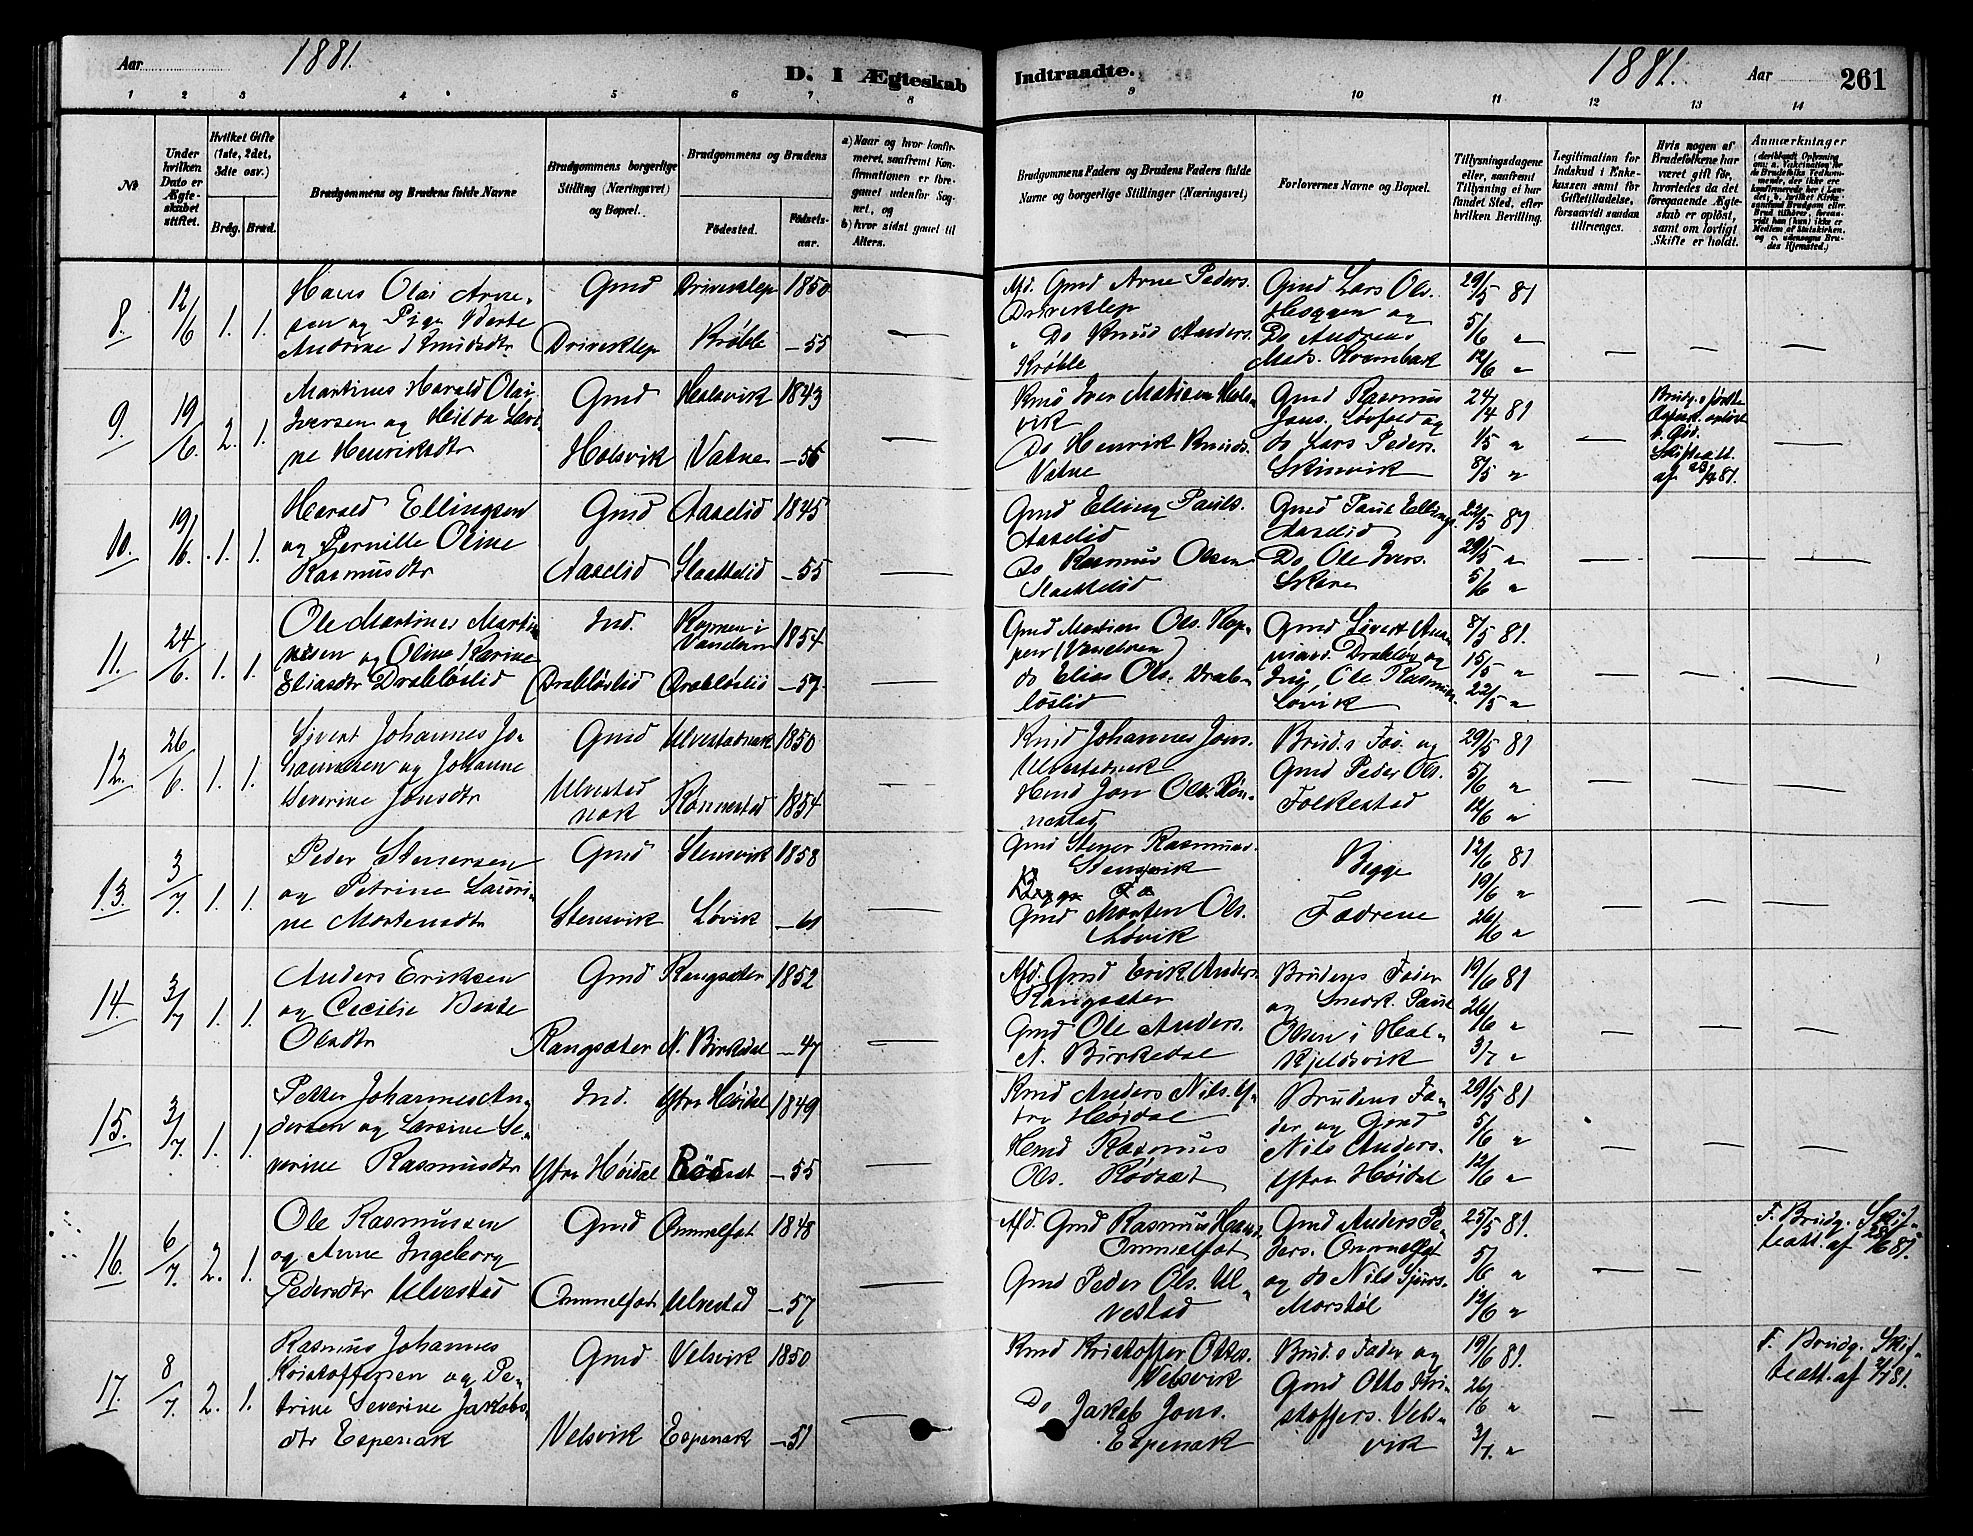 Aar 1881.
D. I Ægteskab Indtraadte.
1881. Aar 261
1 2 3 4 5 6 7 8 9 10 11 12 13 14
No
Under hvilken Dato er Ægteskabet stiftet.
Hvilket Gifte (1ste, 2det, 3die osv.)
Brdg. Brud.
Brudgommens og Brudens fulde Navne
Brudgommens borgerlige Stilling (Næringsvei) og Bopæl.
Brudgommens og Brudens
Fødested.
Fødselsaar.
a) Naar og hvor konfirmeret, saafremt Konfirmationen er foregaaet udenfor Sognet, og
b) hvor sidst gaaet til Alters.
Brudgommens Faders og Brudens Faders fulde Navne og borgerlige Stillinger (Næringsvei)
Forlovernes Navne og Bopæl.
Tillysningsdagene eller, saafremt Tillysning ei har fundet Sted, efter hvilken Bevilling.
Legitimation for Indskud i Enkekassen samt for Giftetilladelse, forsaavidt saadan tiltrænges.
Hvis nogen af Brudefolkene har været gift før, hvorledes da det foregaaende Ægteskab er opløst, samt om lovligt Skifte er holdt.
Anmærkninger
8. 12/6 1. 1.
Hans Olai Arne-
sen og Pige Berte
Andrine Knudsdtr
Gmd
Driveklep
Driveklep 1850
Krøble —55
Afd. Gmd Arne Peders.
Driveklep
" Do Knud Anders.
Krøble
Gmd Lars Ols.
og
Do Andreas
Mads. Krambak
29/5 81
5/6 "
12/6 "
9. 19/6. 2. 1.
Martinus Harald Olai
Iversen og Hilda Lavi-
ne Henriksdtr
Gmd
Halsvik
Halsvik 1843
Vatne —56
Kmd Iver Hals-
vik
Do Henrik Knuds.
Vatne
Gmd Rasmus
Jans. Løvfold og
do Lars Peders.
Skinvik
24/4 81
1/5 "
8/5 "
Brudg.s første
opløst
v. Død.
Skifteatt.
af 23/4 81.
10. 19/6. 1. 1.
Harald Ellingsen
og Pernille Oline
Rasmusdtr
Gmd
Aaselid
Aaselid 1845
Slaattelid —55
Gmd Elling Pauls.
Aaselid
Do Rasmus Olsen
Slaattelid
Gmd Paul Ellings.
Aaselid
Do Ole Ivers.
Skare
22/5 81
29/5 "
5/6 "
11. 24/6. 1. 1.
Ole Martines Marti-
nsen og Oline Karine
Eliasdtr Drabløslid
Ind.
Drabløslid
Koppen i
Vanelven 1854
Drabløslid —57.
Gmd Martin Ols. Kop-
pen (Vanelven)
do Elias Ols. Drab-
løslid
Gmd Sivert
Drabløs og
Ole Rasmus.
Løvik
8/5 81.
15/5 "
22/5 "
12. 26/6. 1. 1.
Sivert Johannes Jo-
hannesen og Johanne
Severine Jonsdtr
Gmd
Ulvestad
nak
Ulvestadnak 1850
Rønnestad 1854
Kmd Johannes Jons.
Ulvestadnak
Hmd Jon Ols. Røn-
nestad
Brud.s Fad. og
Gmd Peder Ols.
Folkestad
29/5 81
5/6 "
12/6 "
13. 3/7. 1. 1.
Peder Stenersen
og Petrine Lauri-
ne Mortensdtr
Gmd
Stensvik
Stensvik 1858
Løvik —61
Gmd Stener Rasmus.
Stensvik
Gmd Morten Ols.
Løvik
Begge
Fædrene
12/6 81
19/6 "
26/6 "
14. 3/7 1. 1.
Anders Eriksen
og Cecilie Bente
Olsdtr
Gmd
Rangsæter
Rangsæter 1852
N. Birkedal —47
Afd. Gmd Erik Anders.
Rangsæter
Gmd Ole Anders.
N. Birkedal
Brudens Fader
og Snedk. Paul
Olsen i Hal-
kjeldsvik
19/6 81
26/6 "
3/7 "
15. 3/7 1. 1.
Petter Johannes An-
dersen og Larsine Se-
verine Rasmusdtr
Ind.
Ytre Høidal
Ytre Høidal 1849
Rødsæt —55
Kmd Anders Nils. Y-
tre Høidal
Hmd Rasmus
Ols. Rødsæt
Brudens Fa-
der og Gmd
Nils Anders.
Ytre Høidal
29/5 81
5/6 "
12/6 "
16. 6/7. 2. 1.
Ole Rasmussen
og Anne Ingeborg
Pedersdtr Ulvestad
Gmd
Ommelfot
Ommelfot 1848
Ulvestad —57
Afd. Gmd Rasmus Hans.
Ommelfot
Gmd Peder Ols. Ul-
vestad
Gmd Anders Pe-
ders. Ommelfot
og do Nils Sjurs.
Morstøl
25/5 81.
5/6 "
12/6 "
F. Brudg. Skif-
teatt. af 28/6 81.
17. 8/7. 2. 1.
Rasmus Johannes
Kristoffersen og Pe-
trine Severine Jakobs-
dtr Espenak
Gmd
Velsvik
Velsvik 1850
Espenak —51
Kmd Kristoffer Ottos.
Velsvik
Do Jakob Jons.
Espenak
Brud.s Fader og
Gmd Otto Kri-
stoffers. Vels-
vik
19/6 81.
26/6 "
3/7. "
F. Brudg. Skif-
teatt. af 2/7 81.